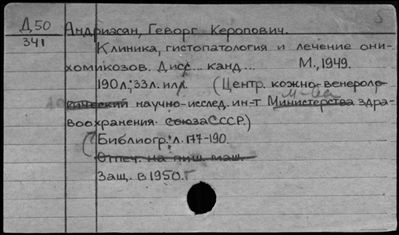 Д.50
341
Андриасян, Геворг Керопович.
Клиника, гистопатология и лечение они-
хомикозов. Дисс... канд... М., 1949.
190л; 33л. илл. (Центр. кожно-венероло-
гический научно-исслед. ин-т Министерства здра-
М-ва
воохранения. Союза СССР.)
(Библиогр: л. 177-190.
Отпеч. на пиш. маш.
Защ. в 1950.г